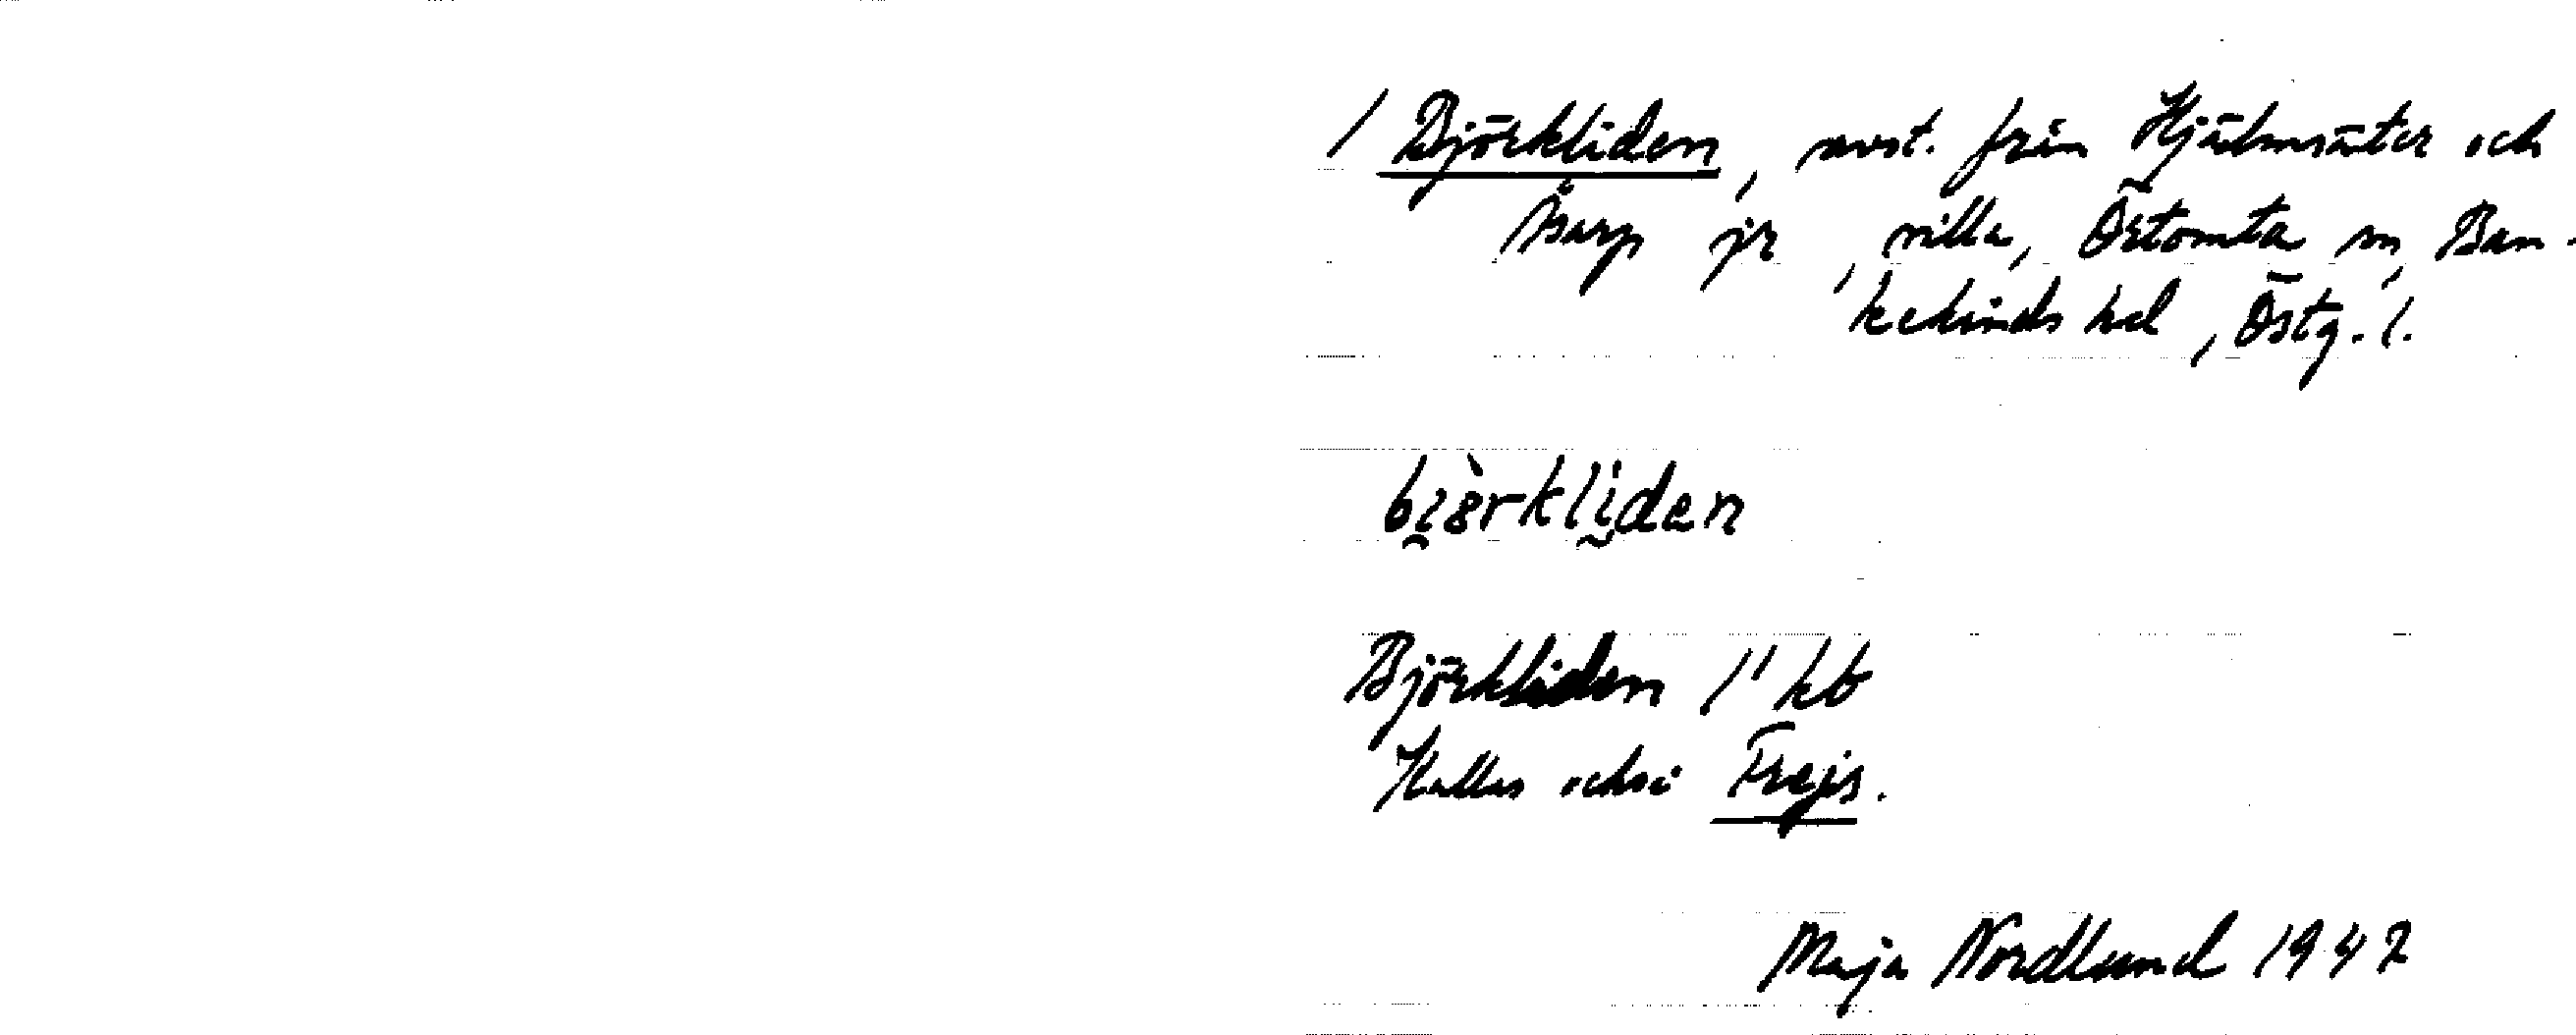 / Björkliden, avst. från Hjälmsäter och
Åsarp jr, villa, Örtomta sn, Ban-
kekinds hd, Östg. l.
bi̯ö̀rkliden
Björkliden 1" kb
Kallas också Frejs.
Maja Nordlund 1942